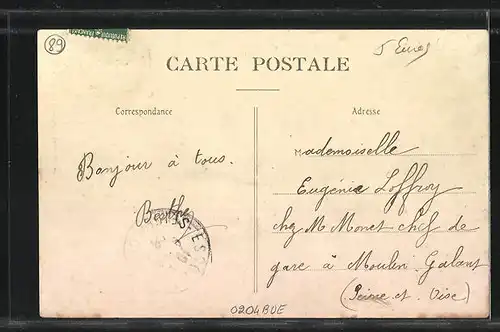 89
5 Euros
CARTE POSTALE
Correspondance
Adresse
Bonjour à tous.
Berthe
Mademoiselle
Eugénie Loffroy
chez M Monet chef de
gare à Moulin-Galant
(Seine et Oise)
0204BUE